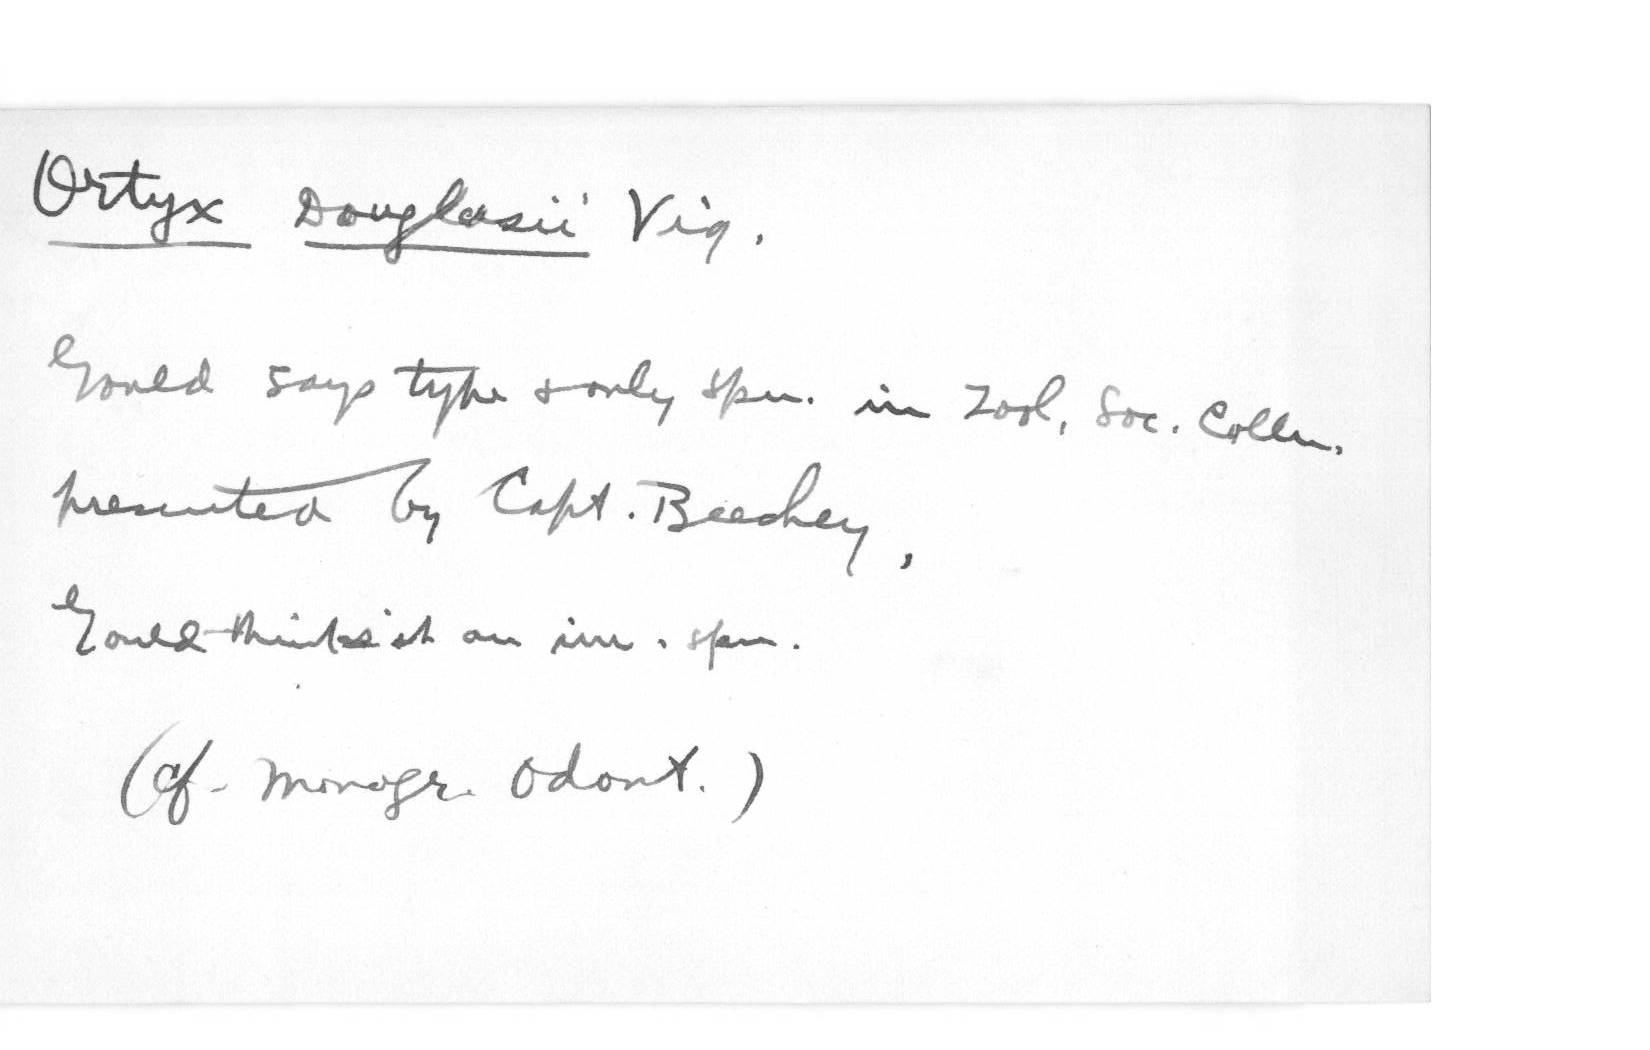 Ortyx Douglasii Vig.
Gould says type & only spn. in Zool. Soc. Colln.
presented by Capt. Beechey,
Gould thinks it an im. spn.
(Cf. Monogr. Odont.)